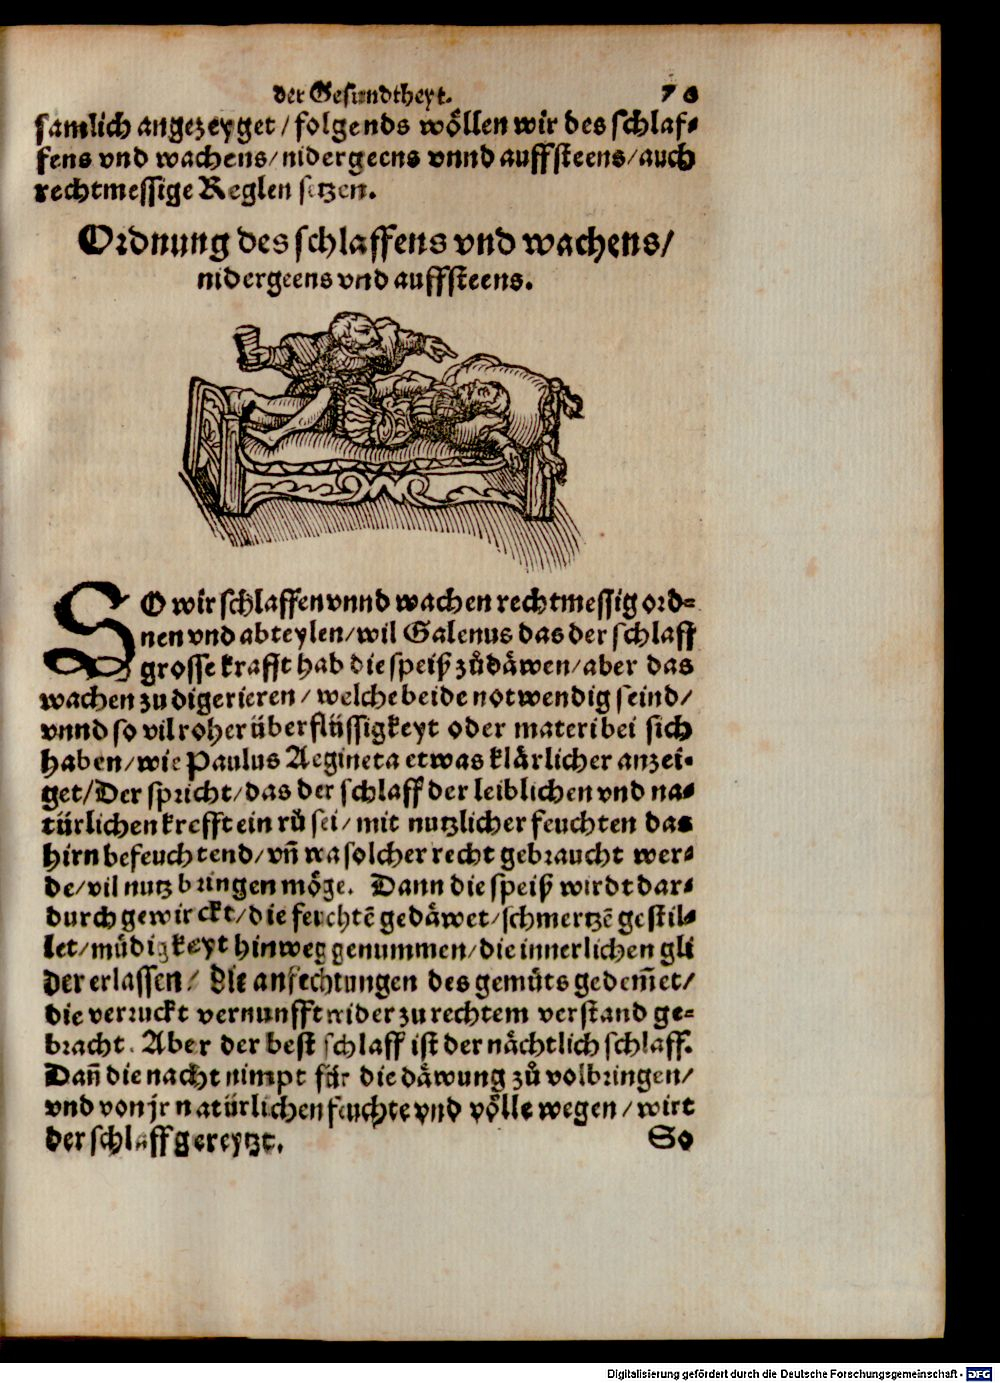 der Gesundtheyt. 70
samlich angezeyget / folgends wöllen wir des schlaf-
fens vnd wachens / nidergeens vnnd auffsteens / auch
rechtmessige Reglen setzen.
Ordnung des schlaffens vnd wachens /
nidergeens vnd auffsteens.
SO wir schlaffen vnnd wachen rechtmessig ord=
nen vnd abteylen / wil Galenus das der schlaff
grosse krafft hab die speiß zůdäwen / aber das
wachen zu digerieren / welche beide notwendig seind /
vnnd so vil roher überflüssigkeyt oder materi bei sich
haben / wie Paulus Aegineta etwas klärlicher anzei-
get / Der spricht / das der schlaff der leiblichen vnd na-
türlichen krefft ein rů sei / mit nutzlicher feuchten das
hirn befeuchtend / vn̄ wa solcher recht gebraucht wer-
de / vil nutz bringen möge. Dann die speiß wirdt dar-
durch gewirckt / die feuchtē gedäwet / schmertzē gestil-
let / müdigkeyt hinweg genummen / die innerlichen gli
der erlassen / Die anfechtungen des gemüts gedem̄et /
die verruckt vernunfft wider zu rechtem verstand ge=
bracht. Aber der best schlaff ist der nächtlich schlaff.
Dan̄ die nacht nimpt für die däwung zů volbringen /
vnd von jr natürlichen feuchte vnd völle wegen / wirt
der schlaff gereytzt. So
Digitalisierung gefördert durch die Deutsche Forschungsgemeinschaft - DFG